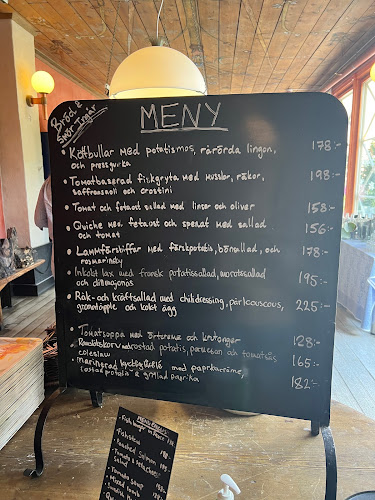 Bröd &
Smör Ingår
MENY
• Köttbullar med potatismos, rårörda lingon, 178:-
och pressgurka
• Tomatbaserad fiskgryta med musslor, räkor, 198:-
saffransaioli och crostini
• Tomat och fetaost sallad med linser och oliver 158:-
• Quiche med fetaost och spenat med sallad 156:-
och tomat
• Lammfärsbiffar med färskpotatis, bönsallad, och 178:-
rosmarinsky
• Inkokt lax med fransk potatissallad, morotssallad 195:-
och dillmajonäs
• Räk- och kräftsallad med chilidressing, pärlcouscous, 225:-
granatäpple och kokt ägg
• Tomatsoppa med örtcreme och krutonger 128:-
rostad potatis, parmesan och tomat 165:-
coleslaw
• Marinerad kycklingfilé med paprikacrème, 182:-
rostad potatis & grillad paprika
Fishsoup
Poached Salmon
Tomato & feta cheese
Salad
Tomato soup
Mixed lamb
Quiche